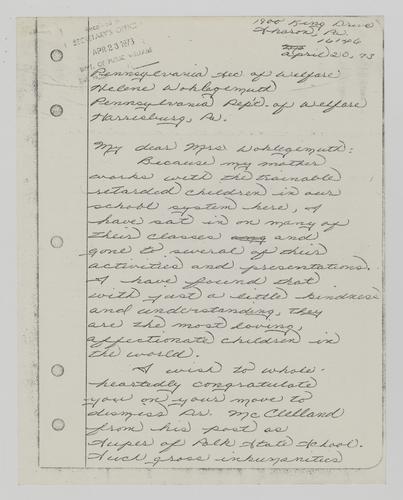 1900 King Drive
Sharon, Pa.
16146
April 20, 73
SECRETARY'S OFFICE
APR 23 1973
DEPT. OF PUBLIC WELFARE
Pennsylvania Sec of Welfare
Helene Wohlegemuth
Pennsylvania Dept. of Welfare
Harrisburg, Pa.
My dear Mrs Wohlegemuth:
Because my mother
works with the trainable
retarded children in our
school system here, I
have sat in on many of
their classes and
gone to several of their
activities and presentations.
I have found that
with just a little kindness
and understanding, they
are the most loving,
affectionate children in
the world.
I wish to whole-
heartedly congratulate
you on your move to
dismiss Dr. McClelland
from his post as
Super of Polk State School.
Such gross inhumanities